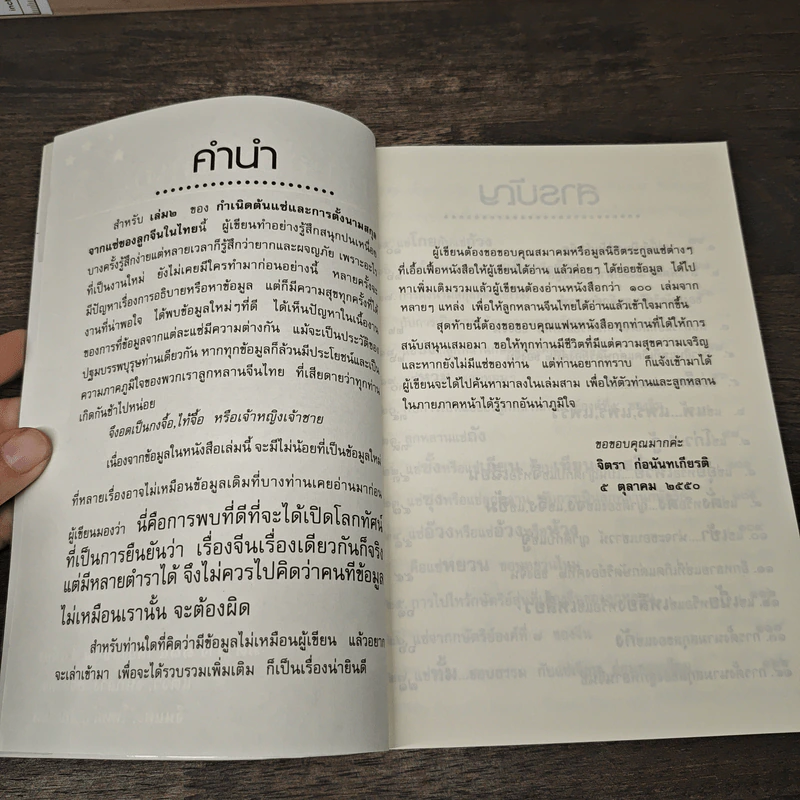 คำนำ
สำหรับ เล่ม๒ ของ กำเนิดต้นแซ่และการตั้งนามสกุล
จากแซ่ของลูกจีนในไทยนี้ ผู้เขียนทำอย่างรู้สึกสนุกปนเหนื่อย
บางครั้งรู้สึกง่ายแต่หลายเวลาก็รู้สึกว่ายากและผจญภัย เพราะอะไร
ที่เป็นงานใหม่ ยังไม่เคยมีใครทำมาก่อนอย่างนี้ หลายครั้งจะ
มีปัญหาเรื่องการอธิบายหรือหาข้อมูล แต่ก็มีความสุขทุกครั้งที่ได้
งานที่น่าพอใจ ได้พบข้อมูลใหม่ๆที่ดี ได้เห็นปัญหาในเนื้องาน
ของการที่ข้อมูลจากแต่ละแซ่มีความต่างกัน แม้จะเป็นประวัติของ
ปฐมบรรพบุรุษท่านเดียวกัน หากทุกข้อมูลก็ล้วนมีประโยชน์และเป็น
ความภาคภูมิใจของพวกเราลูกหลานจีนไทย ที่เสียดายว่าทุกท่าน
เกิดกันช้าไปหน่อย
จึงอดเป็นกงจื้อ,ไท้จื้อ หรือเจ้าหญิงเจ้าชาย
เนื่องจากข้อมูลในหนังสือเล่มนี้ จะมีไม่น้อยที่เป็นข้อมูลใหม่
ที่หลายเรื่องอาจไม่เหมือนข้อมูลเดิมที่บางท่านเคยอ่านมาก่อน
ผู้เขียนมองว่า นี่คือการพบที่ดีที่จะได้เปิดโลกทัศน์
ที่เป็นการยืนยันว่า เรื่องจีนเรื่องเดียวกันก็จริง
แต่มีหลายตำราได้ จึงไม่ควรไปคิดว่าคนที่ข้อมูล
ไม่เหมือนเรานั้น จะต้องผิด
สำหรับท่านใดที่คิดว่ามีข้อมูลไม่เหมือนผู้เขียน แล้วอยาก
จะเล่าเข้ามา เพื่อจะได้รวบรวมเพิ่มเติม ก็เป็นเรื่องน่ายินดี
ผู้เขียนต้องขอขอบคุณสมาคมหรือมูลนิธิตระกูลแซ่ต่างๆ
ที่เอื้อเฟื้อหนังสือให้ผู้เขียนได้อ่าน แล้วค่อยๆ ได้ย่อยข้อมูล ได้ไป
หาเพิ่มเติมรวมแล้วผู้เขียนต้องอ่านหนังสือกว่า ๑๐๐ เล่มจาก
หลายๆ แหล่ง เพื่อให้ลูกหลานจีนไทยได้อ่านแล้วเข้าใจมากขึ้น
สุดท้ายนี้ต้องขอขอบคุณแฟนหนังสือทุกท่านที่ได้ให้การ
สนับสนุนเสมอมา ขอให้ทุกท่านมีชีวิตที่มีแต่ความสุขความเจริญ
และหากยังไม่มีแซ่ของท่าน แต่ท่านอยากทราบ ก็แจ้งเข้ามาได้
ผู้เขียนจะได้ไปค้นหามาลงในเล่มสาม เพื่อให้ตัวท่านและลูกหลาน
ในภายภาคหน้าได้รู้รากอันน่าภูมิใจ
ขอขอบคุณมากค่ะ
จิตรา ก่อนันทเกียรติ
๕ ตุลาคม ๒๕๕๐